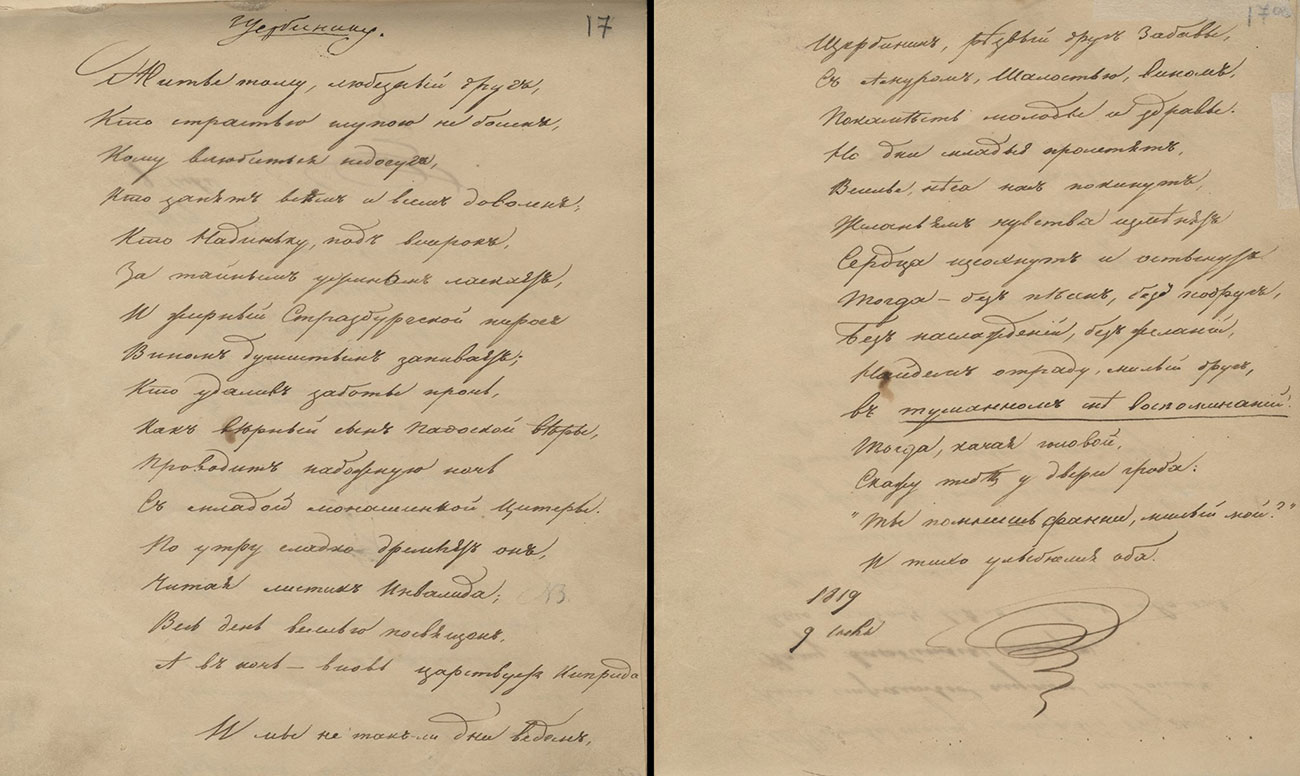 Щербинину.
17
Житье тому, любезный другъ,
Кто страстью глупою не боленъ,
Кому влюбиться недосугъ,
Кто занятъ всѣмъ и всѣмъ доволенъ;
Кто Надиньку, подъ вечерокъ,
За тайнымъ ужиномъ ласкаетъ,
И жирный Стразбургской пирогъ
Виномъ душистымъ запиваетъ;
Кто удаливъ заботы прочь,
Какъ вѣрный сынъ Пафоской вѣры,
Проводитъ набожную ночь
Съ младой монашенкой Цитеры.
По утру сладко дремлетъ онъ,
Читая листикъ Инвалида;
Весь день веселью посвященъ,
А въ ночь — вновь царствуетъ Киприда
И мы не такъ-ли дни ведемъ,
17 об
Щербининъ, рѣзвый другъ Забавы,
Съ Амуромъ, Шалостью, виномъ,
Покамѣстъ молоды и здравы.
Но дни младые пролетятъ,
Веселье, нѣга насъ покинутъ,
Желаньямъ чувства измѣнятъ
Сердца изсохнутъ и остынутъ
Тогда — безъ пѣсенъ, безъ подругъ,
Безъ наслажденій, безъ желаній,
Найдемъ отраду, милый другъ,
въ туманномъ снѣ воспоминаній.
Тогда, качая головой,
Скажу тебѣ у двери гроба:
"Ты помнишь Фанни, милый мой?"
И тихо улыбнемся оба.
1819
9 Іюля